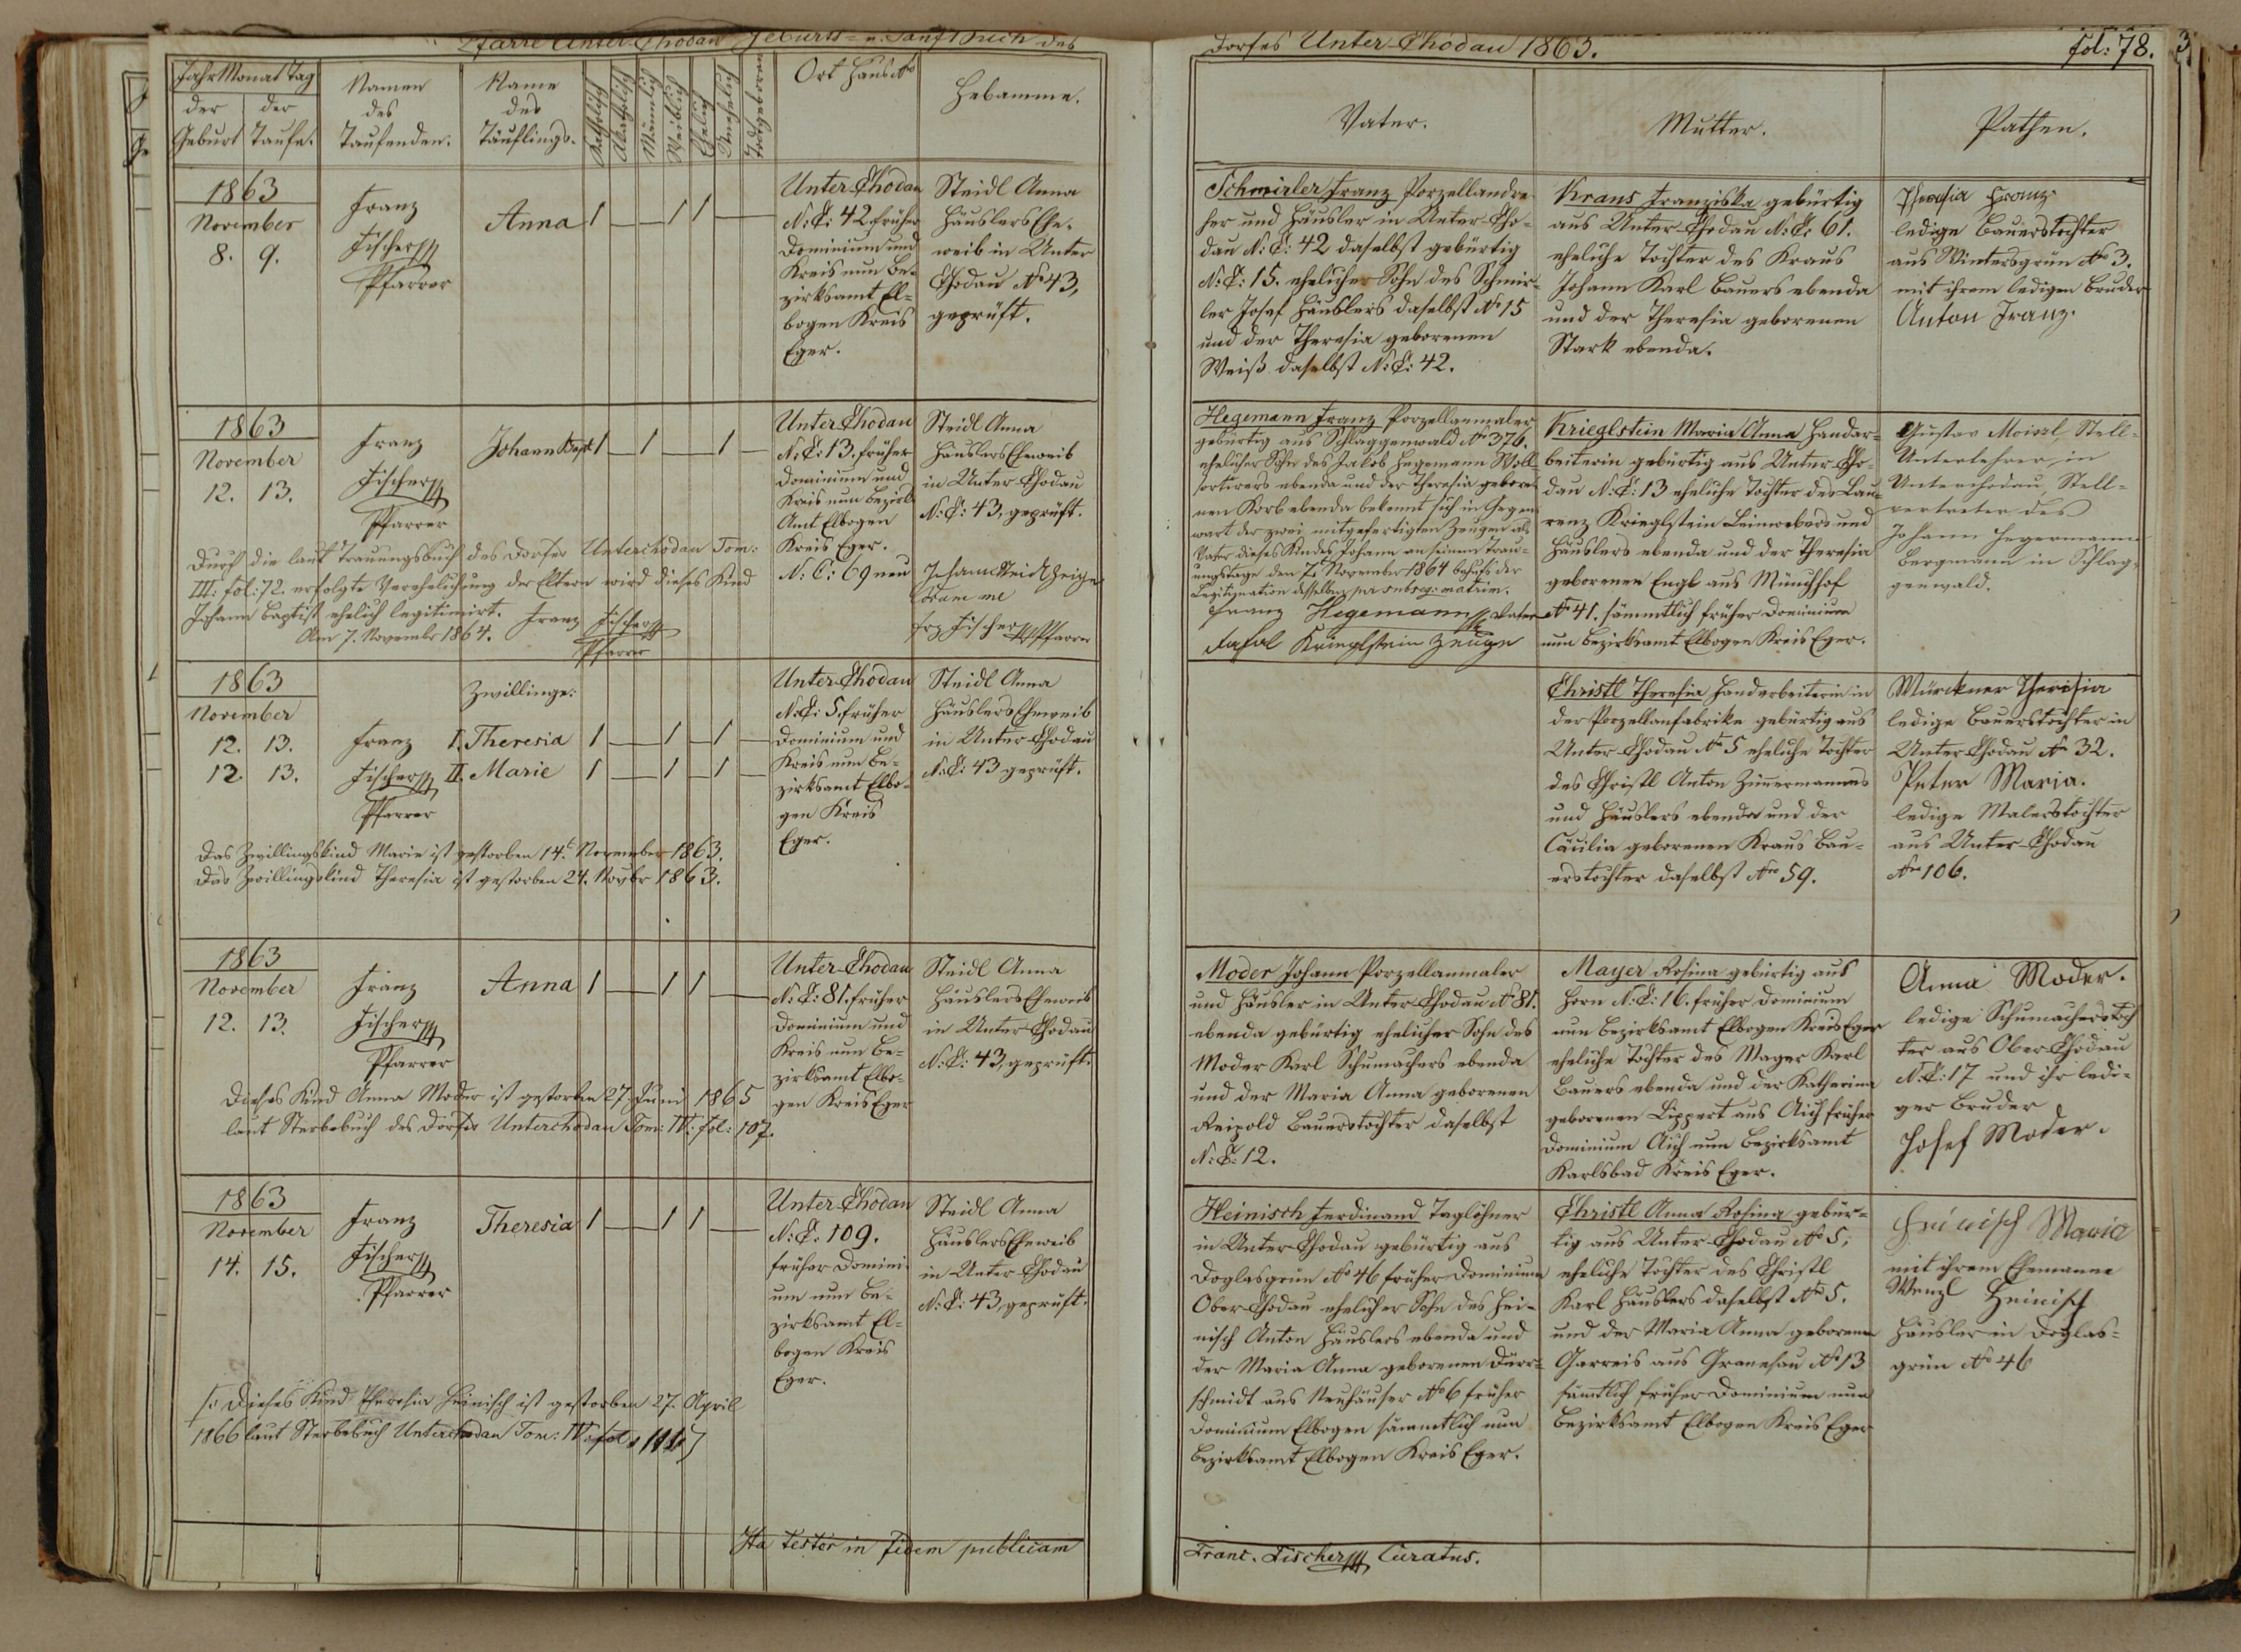 Pfarre Unter-Chodau Geburts- u. Tauf Buch des
Jahr Monat Tag
der der
Geburt Taufe.
Namen
des
Taufenden.
Name
des
Täuflings.
Katholisch
Akatholisch
Männlich
Weiblich
Ehelich
Unehelich
Todtgeboren
Ort Haus No
Hebamme.
1863
November
8. 9.
Franz
Fischer
Pfarrer
Anna 1 1 1
Unter-Chodau
N:C: 42. früher
Dominium und
Kreis nun Be-
zirksamt El-
bogen Kreis
Eger.
Steidl Anna
Häuslers Ehe-
weib in Unter
Chodau No 43,
geprüft.
1863
November
12. 13.
Franz
Fischer
Pfarrer
Johann Bapt 1 1 1
Unter Chodau
N:C: 13. früher
Dominium und
Kreis nun Bezirks
Amt Elbogen
Kreis Eger.
N: C: 69 neu
Steidl Anna
Häuslers Eheweib
in Unter-Chodau
N:C: 43, geprüft.
Johann Steidl Zeuge
Coram me
Frz Fischer Pfarrer
Durch die laut Trauungsbuch des Dorfes Unterchodau Tom:
III: fol: 72. erfolgte Verehelichung der Eltern wird dieses Kind
Johann Baptist ehelich legitimirt. Franz Fischer
Am 7. November 1864. Pfarrer
1863
November
12. 13.
12. 13.
Franz
Fischer
Pfarrer
Zwillinge:
I. Theresia 1 1 1
II. Marie 1 1 1
Unter-Chodau
N:C: 5. früher
Dominium und
Kreis nun Be-
zirksamt Elbo-
gen Kreis
Eger.
Steidl Anna
Häuslers Eheweib
in Unter-Chodau
N:C: 43 geprüft.
Das Zwillingskind Marie ist gestorben 14.t November 1863.
Das Zwillingskind Theresia ist gestorben 24. Novbr 1863.
1863
November
12. 13.
Franz
Fischer
Pfarrer
Anna 1 1 1
Unter-Chodau
N:C: 81. früher
Dominium und
Kreis nun Be-
zirksamt Elbo-
gen Kreis Eger
Steidl Anna
Häuslers Eheweib
in Unter Chodau
N:C: 43, geprüft.
Dieses Kind Anna Moder ist gestorben 27. Juni 1865
laut Sterbebuch des Dorfes Unterchodau Tom: IV: fol: 107.
1863
November
14. 15.
Franz
Fischer
Pfarrer
Theresia 1 1 1
Unter-Chodau
N:C: 109.
früher Domini-
um nun Be-
zirksamt El-
bogen Kreis
Eger.
Steidl Anna
Häuslers Eheweib
in Unter Chodau
N:C: 43, geprüft.
Dieses Kind Theresia Heinisch ist gestorben 27. April
1866 laut Sterbebuch Unterchodau Tom: IV: fol:
Ita testor in fidem publicam
Dorfes Unter-Chodau 1863. fol: 78.
Vater. Mutter. Pathen.
Schmieler Franz Porzellandre-
her und Häusler in Unter-Cho-
dau N:C: 42 daselbst gebürtig
N:C: 15. ehelicher Sohn des Schmie-
ler Josef Häuslers daselbst No 15
und der Theresia geborenen
Weiß daselbst N:C: 42.
Kraus Franziska gebürtig
aus Unter-Chodau N:C: 61.
eheliche Tochter des Kraus
Johann Karl Bauers ebenda
und der Theresia geborenen
Stark ebenda.
Theresia Franz
ledige Bauerstochter
aus Wintersgrün No 3.
mit ihrem ledigen Bruder
Anton Franz.
Hegemann Franz Porzellanmaler
gebürtig aus Schlaggenwald No 376.
ehelicher Sohn des Jakob Hegemann Woll-
sortirers ebenda und der Theresia gebore-
nen Korb ebenda bekennt sich in Gegen-
wart der zwei mitgefertigten Zeugen als
Vater dieses Kindes Johann an seinem Trau-
ungstage den 7. November 1864 behufs der
Legitimation desselben per subseq: matrim.
Franz Hegemann Vater
Krieglstein Zeuge
Krieglstein Maria Anna Handar-
beiterin gebürtig aus Unter-Cho-
dau N:C: 13 eheliche Tochter des Lau-
renz Krieglstein Leinwebers und
Häuslers ebenda und der Theresia
geborenen Engl aus Münchhof
No 41. sämmtlich früher Dominium
nun Bezirksamt Elbogen Kreis Eger.
Gustav Moissl, Stell-
Unterlehrer in
Unterchodau, Stell-
vertreter des
Johann Hegermann
Bergmann in Schlag-
genwald.
Christl Theresia Handarbeiterin in
der Porzellanfabrike gebürtig aus
Unter-Chodau No 5 eheliche Tochter
des Christl Anton Zimmermanns
und Häuslers ebenda und der
Cäcilia geborenen Kraus Bau-
erstochter daselbst Nro 59.
Mürckner Theresia
ledige Bauerstochter in
Unter Chodau No 32.
Peter Maria.
ledige Malerstochter
aus Unter-Chodau
Nro 106.
Moder Johann Porzellanmaler
und Häusler in Unter-Chodau No 81.
ebenda gebürtig ehelicher Sohn des
Moder Karl Schumachers ebenda
und der Maria Anna geborenen
Reipold Bauerstochter daselbst
N:C: 12.
Mayer Rosina gebürtig aus
Horn N:C: 16. früher Dominium
nun Bezirksamt Elbogen Kreis Eger
eheliche Tochter des Mayer Karl
Bauers ebenda und der Katherina
geborenen Lippert aus Aich früher
Dominium Aich nun Bezirksamt
Karlsbad Kreis Eger.
Anna Moder.
ledige Schumacherstoch
ter aus Ober-Chodau
N:C: 17 und ihr ledi-
ger Bruder
Josef Moder.
Heinisch Ferdinand Taglöhner
in Unter-Chodau gebürtig aus
Doglasgrün No 46 früher Dominium
Ober-Chodau ehelicher Sohn des Hei-
nisch Anton Häuslers ebenda und
der Maria Anna geborenen Dürr-
schmidt aus Neuhäuser No 6 früher
Dominium Elbogen sämmtlich nun
Bezirksamt Elbogen Kreis Eger.
Christl Anna Rosina gebür-
tig aus Unter-Chodau No 5,
eheliche Tochter des Christl
Karl Häuslers daselbst No 5.
und der Maria Anna geborenen
Garreis aus Granesau No 13
sämtlich früher Dominium nun
Bezirksamt Elbogen Kreis Eger
Heinisch Maria
mit ihrem Ehemanne
Wenzl Heinisch
Häusler in Doglas-
grün No 46
Franc. Fischer Curatus.